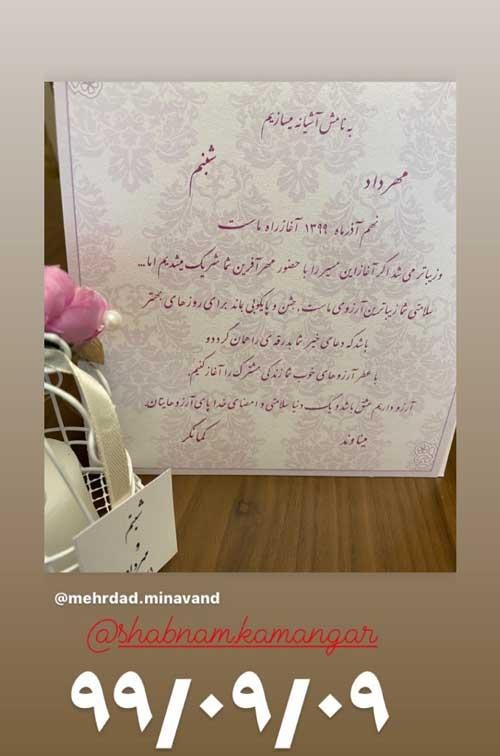 به نامش آشیانه میسازیم
مهرداد
شبنم
نهم آذرماه ۱۳۹۹ آغاز راه ماست
وزیباتر می شد اگر آغاز این مسیر را با حضور مهرآفرین شما شریک میشدیم اما...
سلامتی شما زیباترین آرزوی ماست، جشن و پایکوبی بماند برای روزهای بهتر
باشد که دعای خیر شما بدرقه ی راهمان گردد و
با عطر آرزوهای خوب شما زندگی مشترک را آغاز کنیم.
آرزو داریم عشق باشد و یک دنیا سلامتی و امضای خدا پای آرزوهایتان.
میناوند
کمانگر
شبنم
و
مهرداد
@mehrdad.minavand
@shabnamkamangar
۹۹/۰۹/۰۹